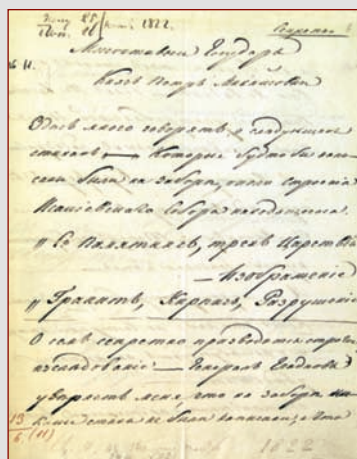 1822.
Секретно
№ 11.
Милостивый Государь
Князь Петръ Михайловичь
Здесь много говорятъ о следующихъ
стихахъ, — Которые будто бы
были на заборѣ, около строенія
Исакіевскаго Собора находящемся.
„ Се Памятникъ, трехъ Царствъ
— Изображеніе
„ Гранитъ, Кирпичь, Разрушеніе
О семъ секретно производится строгое
изследованіе — Генералъ
меня, что на заборѣ
стиховъ не было написано, и что
13
6
(11)
1822